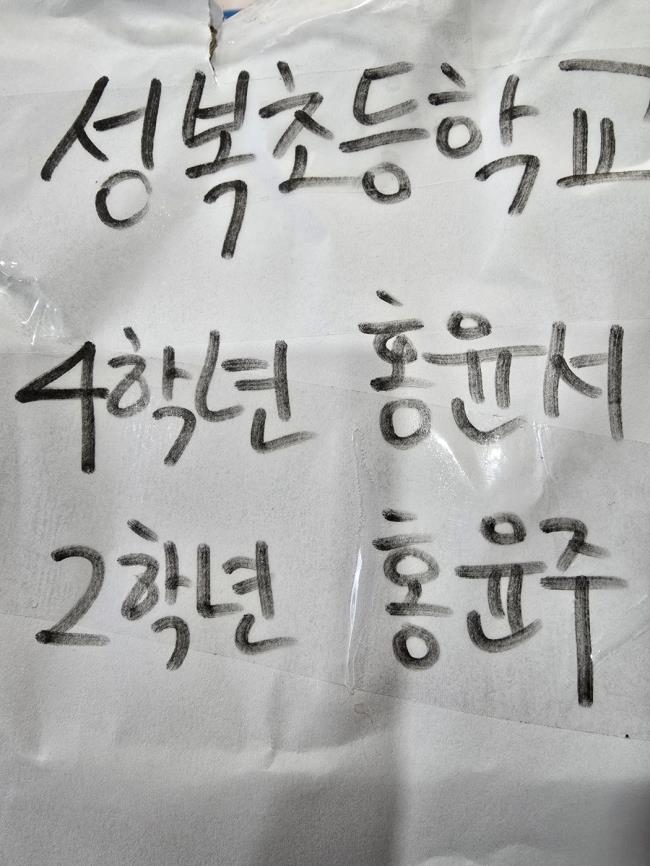 성복초등학교
4학년 홍윤서
2학년 홍윤주